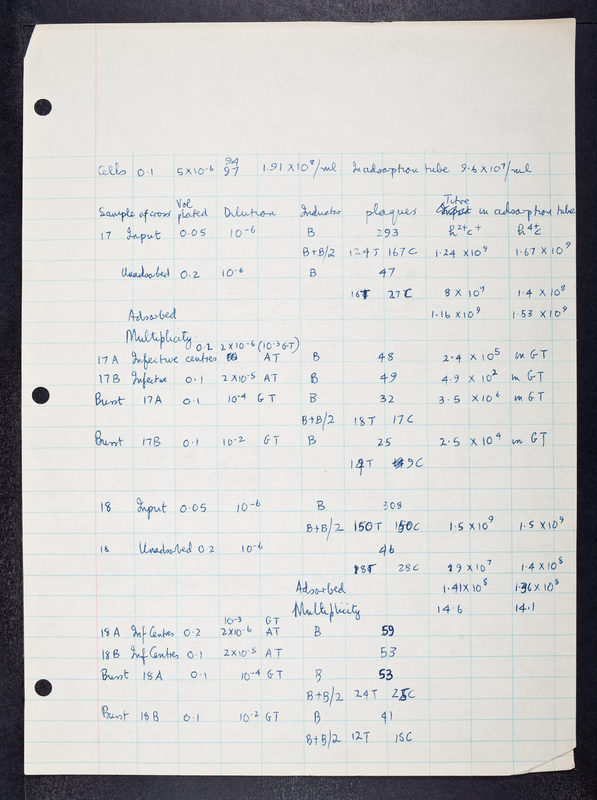 94
Cells 0.1 5×10⁻⁶ 97 1.91 ×10⁸/ml In adsorption tube 9.6×10⁷/ml
Vol Titre
Sample of cross plated Dilution Inductor plaques in adsorption tube
17 Input 0.05 10⁻⁶ B 293 h²⁺c⁺ h⁴⁺c
B+B/2 124T 167C 1.24 ×10⁹ 1.67 ×10⁹
Unadsorbed 0.2 10⁻⁶ B 47
16T 27C 8 × 10⁷ 1.4 × 10⁸
Adsorbed 1.16 ×10⁹ 1.53 ×10⁹
Multiplicity
0.2 2×10⁻⁶ (10⁻³ GT)
17A Infective centres AT B 48 2.4 × 10⁵ in GT
17B Infective 0.1 2×10⁻⁵ AT B 49 4.9 × 10² in GT
Burst 17A 0.1 10⁻⁴ GT B 32 3.5 ×10⁶ in GT
B+B/2 18T 17C
Burst 17B 0.1 10⁻² GT B 25 2.5 ×10⁴ in GT
T 9C
18 Input 0.05 10⁻⁶ B 308
B+B/2 150T 150C 1.5 ×10⁹ 1.5 ×10⁹
18 Unadsorbed 0.2 10⁻⁶ 46
18T 28C 9 ×10⁷ 1.4×10⁸
Adsorbed 1.41×10⁸ 1.36×10⁸
Multiplicity 14.6 14.1
10⁻³ GT
18A Inf Centres 0.2 2×10⁻⁶ AT B 59
18B Inf Centres 0.1 2×10⁻⁵ AT 53
Burst 18A 0.1 10⁻⁴ GT B 53
B+B/2 24T 25C
Burst 18B 0.1 10⁻² GT B 41
B+B/2 12T 15C